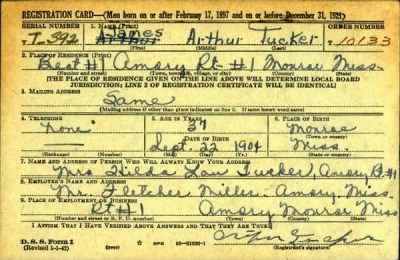 REGISTRATION CARD—(Men born on or after February 17, 1897 and on or before December 31, 1921)
SERIAL NUMBER 1. NAME (Print) ORDER NUMBER
T-392 James Arthur Tucker 10133
(First) (Middle) (Last)
2. PLACE OF RESIDENCE (Print)
Beat #1 Amory Rt #1 Monroe Miss.
(Number and street) (Town, township, village, or city) (County) (State)
[THE PLACE OF RESIDENCE GIVEN ON THE LINE ABOVE WILL DETERMINE LOCAL BOARD
JURISDICTION; LINE 2 OF REGISTRATION CERTIFICATE WILL BE IDENTICAL]
3. MAILING ADDRESS
Same
[Mailing address if other than place indicated on line 2. If same insert word same]
4. TELEPHONE 5. AGE IN YEARS 6. PLACE OF BIRTH
none 37 Monroe
DATE OF BIRTH (Town or county)
Sept. 22 1904 Miss.
(Exchange) (Number) (Mo.) (Day) (Yr.) (State or country)
7. NAME AND ADDRESS OF PERSON WHO WILL ALWAYS KNOW YOUR ADDRESS
Mrs Hilda Lou Tucker, Amory Rt #1
8. EMPLOYER'S NAME AND ADDRESS
Mr. Fletcher Miller. Amory, Miss.
9. PLACE OF EMPLOYMENT OR BUSINESS
Rt #1 Amory Monroe Miss
(Number and street or R. F. D. number) (Town) (County) (State)
I AFFIRM THAT I HAVE VERIFIED ABOVE ANSWERS AND THAT THEY ARE TRUE.
D. S. S. Form 1
(Revised 1-5-42) (over) GPO (Registrant's signature)